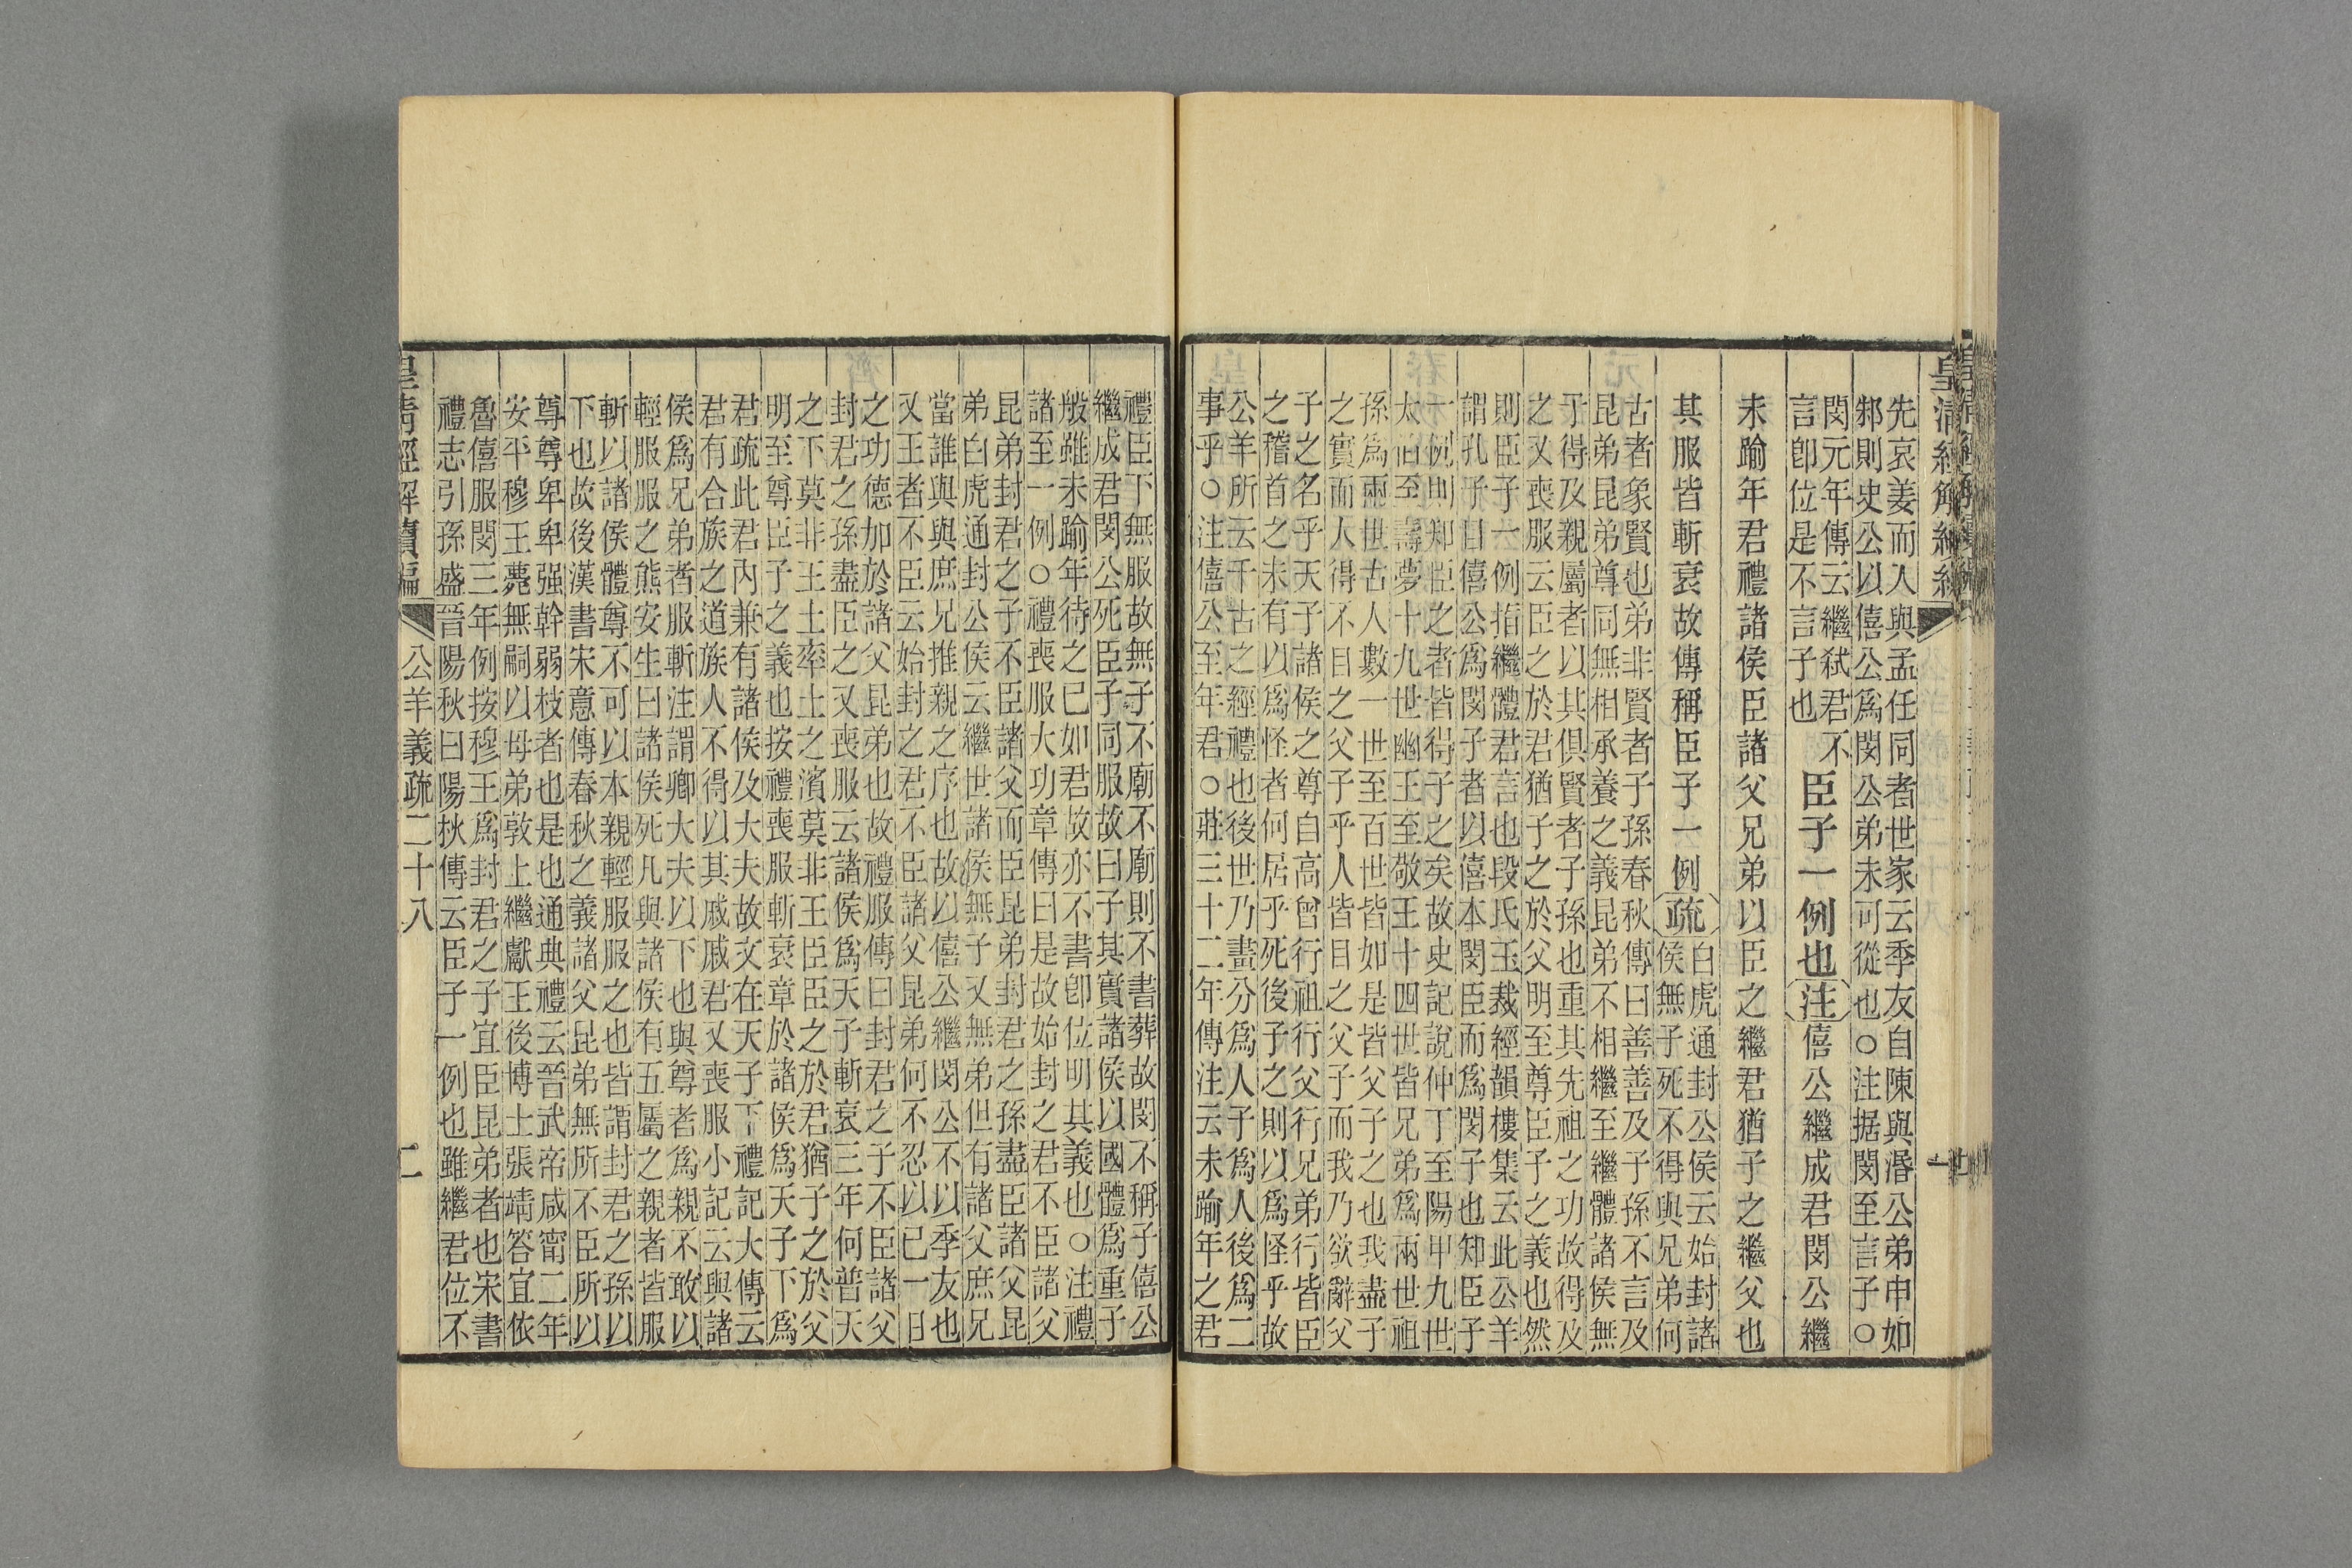 皇清經解續編
先哀姜而入與孟任同者世家云季友自陳與湣公弟申如
邾則史公以僖公爲閔公弟未可從也○注据閔至言子○
閔元年傳云繼弑君不
言卽位是不言子也
臣子一例也注僖公繼成君閔公繼
未踰年君禮諸侯臣諸父兄弟以臣之繼君猶子之繼父也
其服皆斬衰故傳稱臣子一例疏
白虎通封公侯云始封諸
侯無子死不得與兄弟何
古者象賢也弟非賢者子孫春秋傳曰善善及子孫不言及
昆弟昆弟尊同無相承養之義昆弟不相繼至繼體諸侯無
子得及親屬者以其俱賢者子孫也重其先祖之功故得及
之又喪服云臣之於君猶子之於父明至尊臣子之義也然
則臣子一例指繼體君言也段氏玉裁經韻樓集云此公羊
謂孔子曰僖公爲閔子者以僖本閔臣而爲閔子也知臣子
一例則知臣之者皆得子之矣故史記說仲丁至陽甲九世
太伯至壽夢十九世幽王至敬王十四世皆兄弟爲兩世祖
孫爲兩世古人數一世至百世皆如是皆父子之也我盡子
之實而人得不目之父子乎人皆目之父子而我乃欲辭父
子之名乎天子諸侯之尊自高曾行祖行父行兄弟行皆臣
之稽首之未有以爲怪者何居乎死後子之則以爲怪乎故
公羊所云千古之經禮也後世乃畫分爲人子爲人後爲二
事乎○注僖公至年君○莊三十二年傳注云未踰年之君
禮臣下無服故無子不廟不廟則不書葬故閔不稱子僖公
繼成君閔公死臣子同服故曰子其實諸侯以國體爲重子
般雖未踰年待之已如君故亦不書卽位明其義也○注禮
諸至一例○禮喪服大功章傳曰是故始封之君不臣諸父
昆弟封君之子不臣諸父而臣昆弟封君之孫盡臣諸父昆
弟白虎通封公侯云繼世諸侯無子又無弟但有諸父庶兄
當誰與與庶兄推親之序也故以僖公繼閔公不以季友也
又王者不臣云始封之君不臣諸父昆弟何不忍以已一日
之功德加於諸父昆弟也故禮服傳曰封君之子不臣諸父
封君之孫盡臣之又喪服云諸侯爲天子斬衰三年何普天
之下莫非王土率土之濱莫非王臣臣之於君猶子之於父
明至尊臣子之義也按禮喪服斬衰章於諸侯爲天子下爲
君疏此君內兼有諸侯及大夫故文在天子下禮記大傳云
君有合族之道族人不得以其戚戚君又喪服小記云與諸
侯爲兄弟者服斬注謂卿大夫以下也與尊者爲親不敢以
輕服服之熊安生曰諸侯死凡與諸侯有五屬之親者皆服
斬以諸侯體尊不可以本親輕服服之也皆謂封君之孫以
下也故後漢書宋意傳春秋之義諸父昆弟無所不臣所以
尊尊卑卑强幹弱枝者也是也通典禮云晉武帝咸甯二年
安平穆王薨無嗣以母弟敦上繼獻王後博士張靖答宜依
魯僖服閔三年例按穆王爲封君之子宜臣昆弟者也宋書
禮志引孫盛晉陽秋曰陽秋傳云臣子一例也雖繼君位不
皇清經解續編 公羊義疏二十八 二